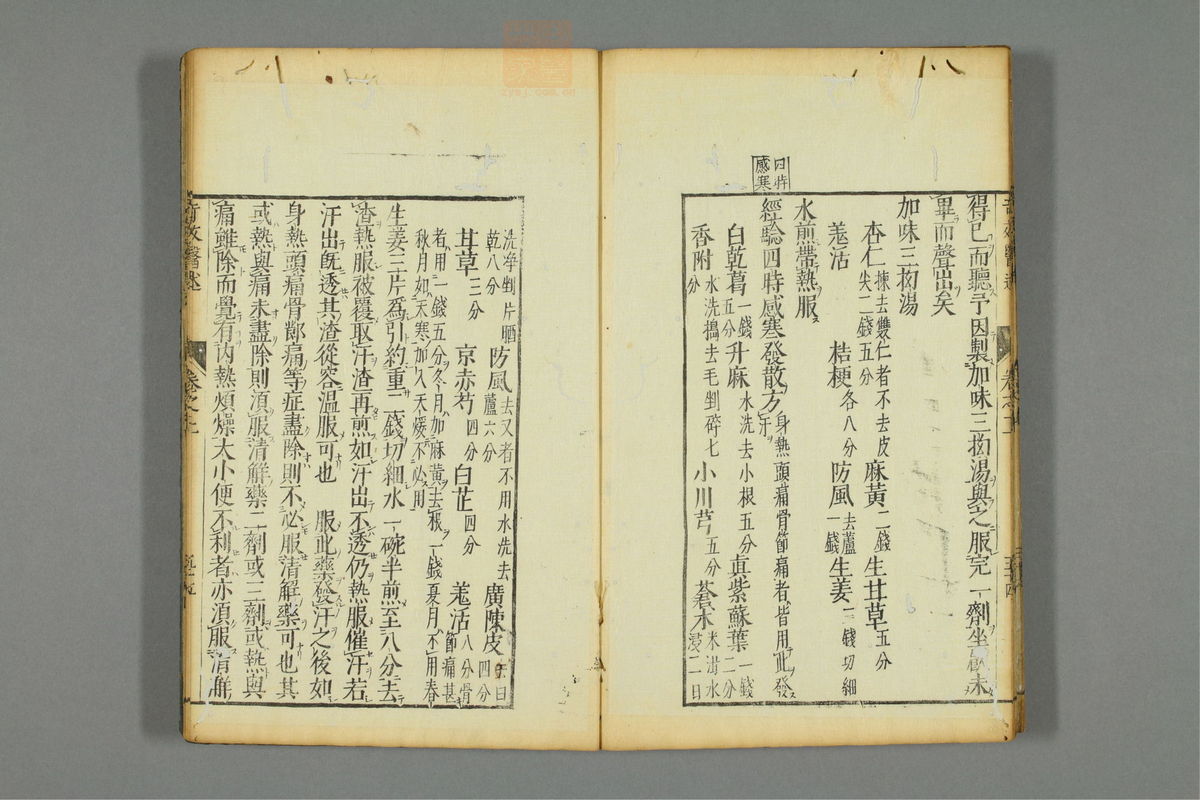 得已而聽予因製加味三拗湯與之服完一劑坐
畢而聲出矣
加味三拗湯
杏仁 揀去雙仁者不去皮尖二錢五分 麻黃 二錢 生甘草 五分
羗活 桔梗 各八分 防風 去蘆一錢 生姜 三錢切細
水煎帶熱服
四時感寒
經驗四時感寒發散方 身熱頭痛骨節痛者皆用此發汗
白乾葛 一錢五分 升麻 水洗去小根五分 真紫蘇葉 一錢二分
香附 水洗搗去毛剉碎七分 小川芎 五分 蒼朮 米泔水浸二日
洗净剉片晒乾八分 防風 去蘆六分 又者不用水洗去 廣陳皮 去白四分
甘草 三分 京赤芍 四分 白芷 四分 羗活 八分骨節痛甚
者用一錢五分冬月加麻黃去根一錢夏月不用春
秋月如天寒加入天煖不必用
生姜三片爲引約重二錢切細水一碗半煎至八分去
渣熱服被覆取汗渣再煎如汗出不透仍熱服催汗若
汗出旣透其渣從容溫服可也 服此藥發汗之後如
身熱頭痛骨節痛等症盡除則不必服清解藥可也其
或熱與痛未盡除則須服清解藥二劑或三劑或熱與
痛雖除而覺有內熱煩燥大小便不利者亦須服清解